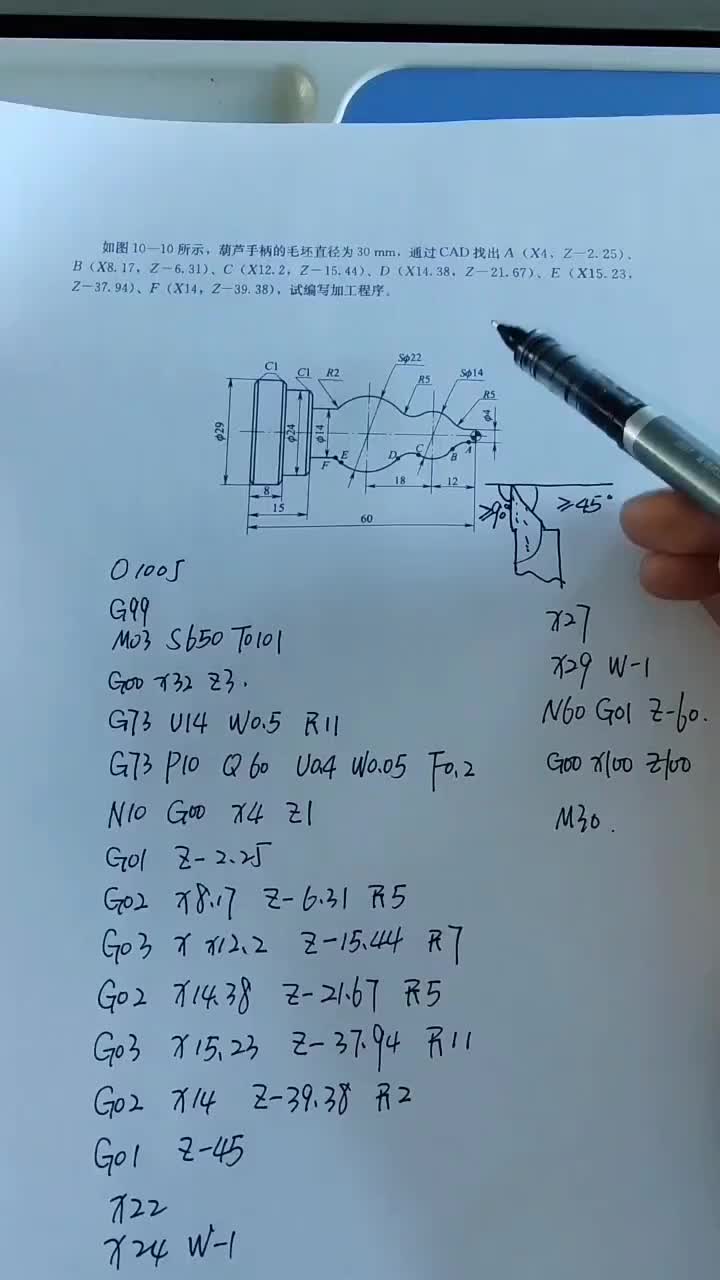 如图 10—10 所示，葫芦手柄的毛坯直径为 30 mm，通过 CAD 找出 A（X4，Z－2.25）、
B（X8.17，Z－6.31）、C（X12.2，Z－15.44）、D（X14.38，Z－21.67）、E（X15.23，
Z－37.94）、F（X14，Z－39.38），试编写加工程序。
Sφ22
C1
C1
R2
R5
Sφ14
R5
φ29
φ24
φ14
φ4
F
E
D
C
B
A
8
18
12
15
60
≥90°
≥45°
O1005
G99
M03 S650 T0101
G00 X32 Z3.
G73 U14 W0.5 R11
G73 P10 Q60 U0.4 W0.05 F0.2
N10 G00 X4 Z1
G01 Z-2.25
G02 X8.17 Z-6.31 R5
G03 X X12.2 Z-15.44 R7
G02 X14.38 Z-21.67 R5
G03 X15.23 Z-37.94 R11
G02 X14 Z-39.38 R2
G01 Z-45
X22
X24 W-1
X27
X29 W-1
N60 G01 Z-60.
G00 X100 Z100
M30.